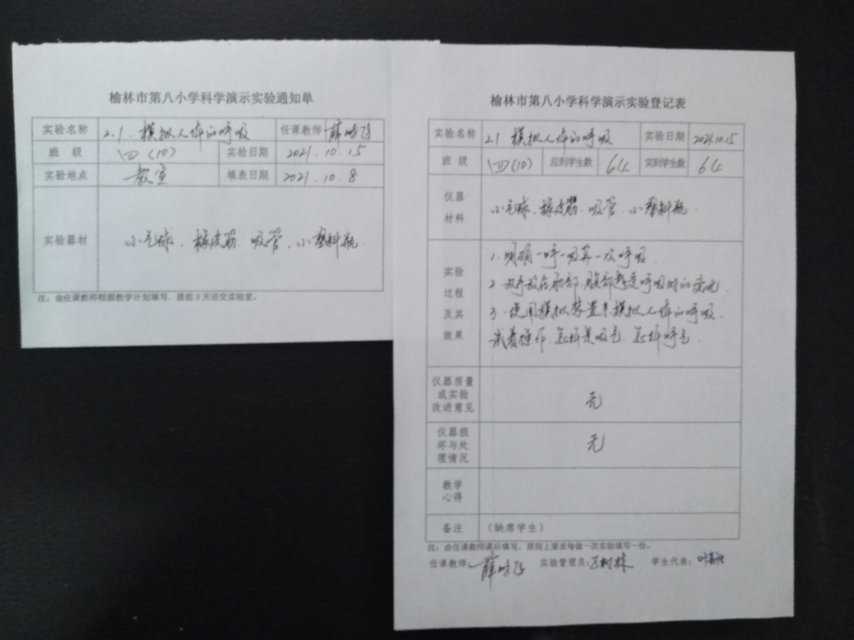 榆林市第八小学科学演示实验通知单
实验名称 2.1. 模拟人体的呼吸 任课教师 薛
班 级 四(10) 实验日期 2021.10.15
实验地点 教室 填表日期 2021.10.8
实验器材 小气球、橡皮筋、吸管、小塑料瓶
注：由任课教师根据教学计划填写，提前3天送交实验室。
榆林市第八小学科学演示实验登记表
实验名称 2.1 模拟人体的呼吸 实验日期 2021.10.15
班 级 四(10) 应到学生数 64 实到学生数 64
仪器
材料
小气球、橡皮筋、吸管、小塑料瓶
实验
过程
及其
效果
1. 明确一呼一吸算一次呼吸.
2. 双手放在胸部、腹部感受呼吸时的变化
3. 使用模拟装置来模拟人体的呼吸.
试着操作,怎样是吸气,怎样呼气.
仪器质量
或实验
改进意见
无
仪器损
坏与处
理情况
无
教学
心得
备注 （缺席学生）
注：由任课教师课后填写，原则上要求每做一次实验填写一份。
任课教师：薛 实验管理员： 树林 学生代表：叶